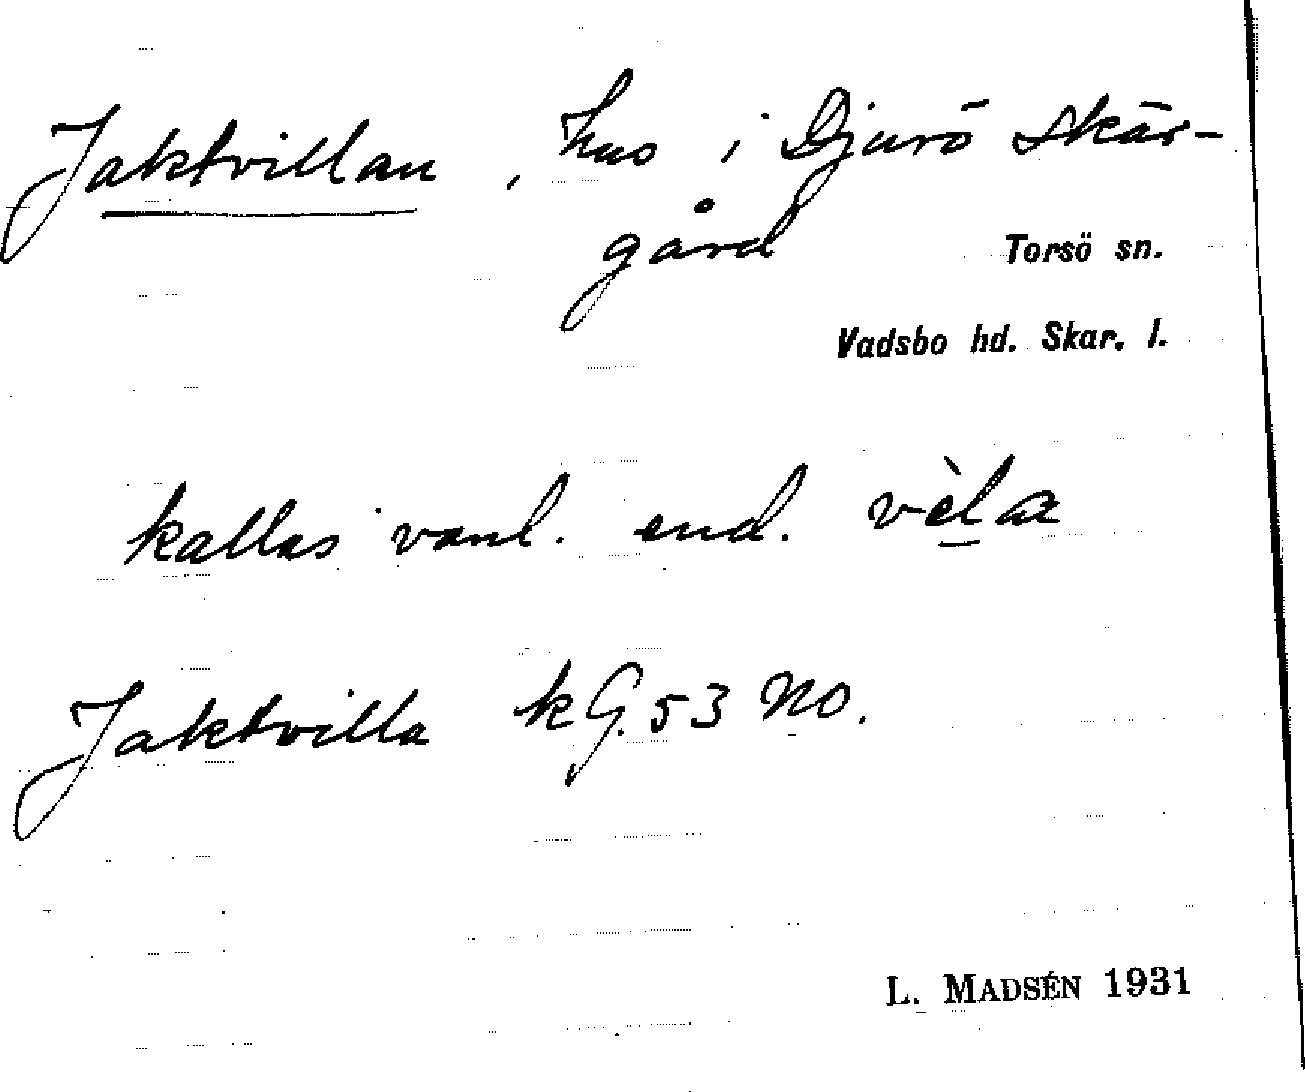 Jaktvillan, hus i Djurö skär-
gård
Torsö sn.
Vadsbo hd. Skar. l.
kallas vanl. end. vèla
Jaktvilla kG.53 NO.
L. MADSÉN 1931